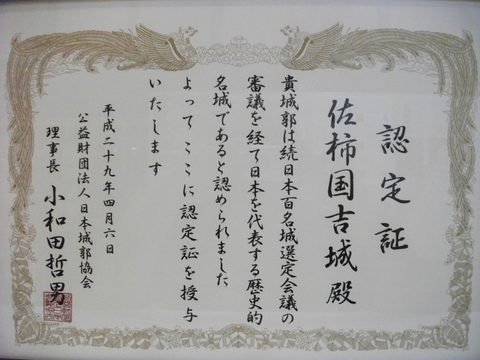 認定証
佐柿国吉城殿
貴城郭は続日本百名城選定会議の
審議を経て日本を代表する歴史的
名城であると認められました
よってここに認定証を授与
いたします
平成二十九年四月六日
公益財団法人日本城郭協会
理事長 小和田哲男